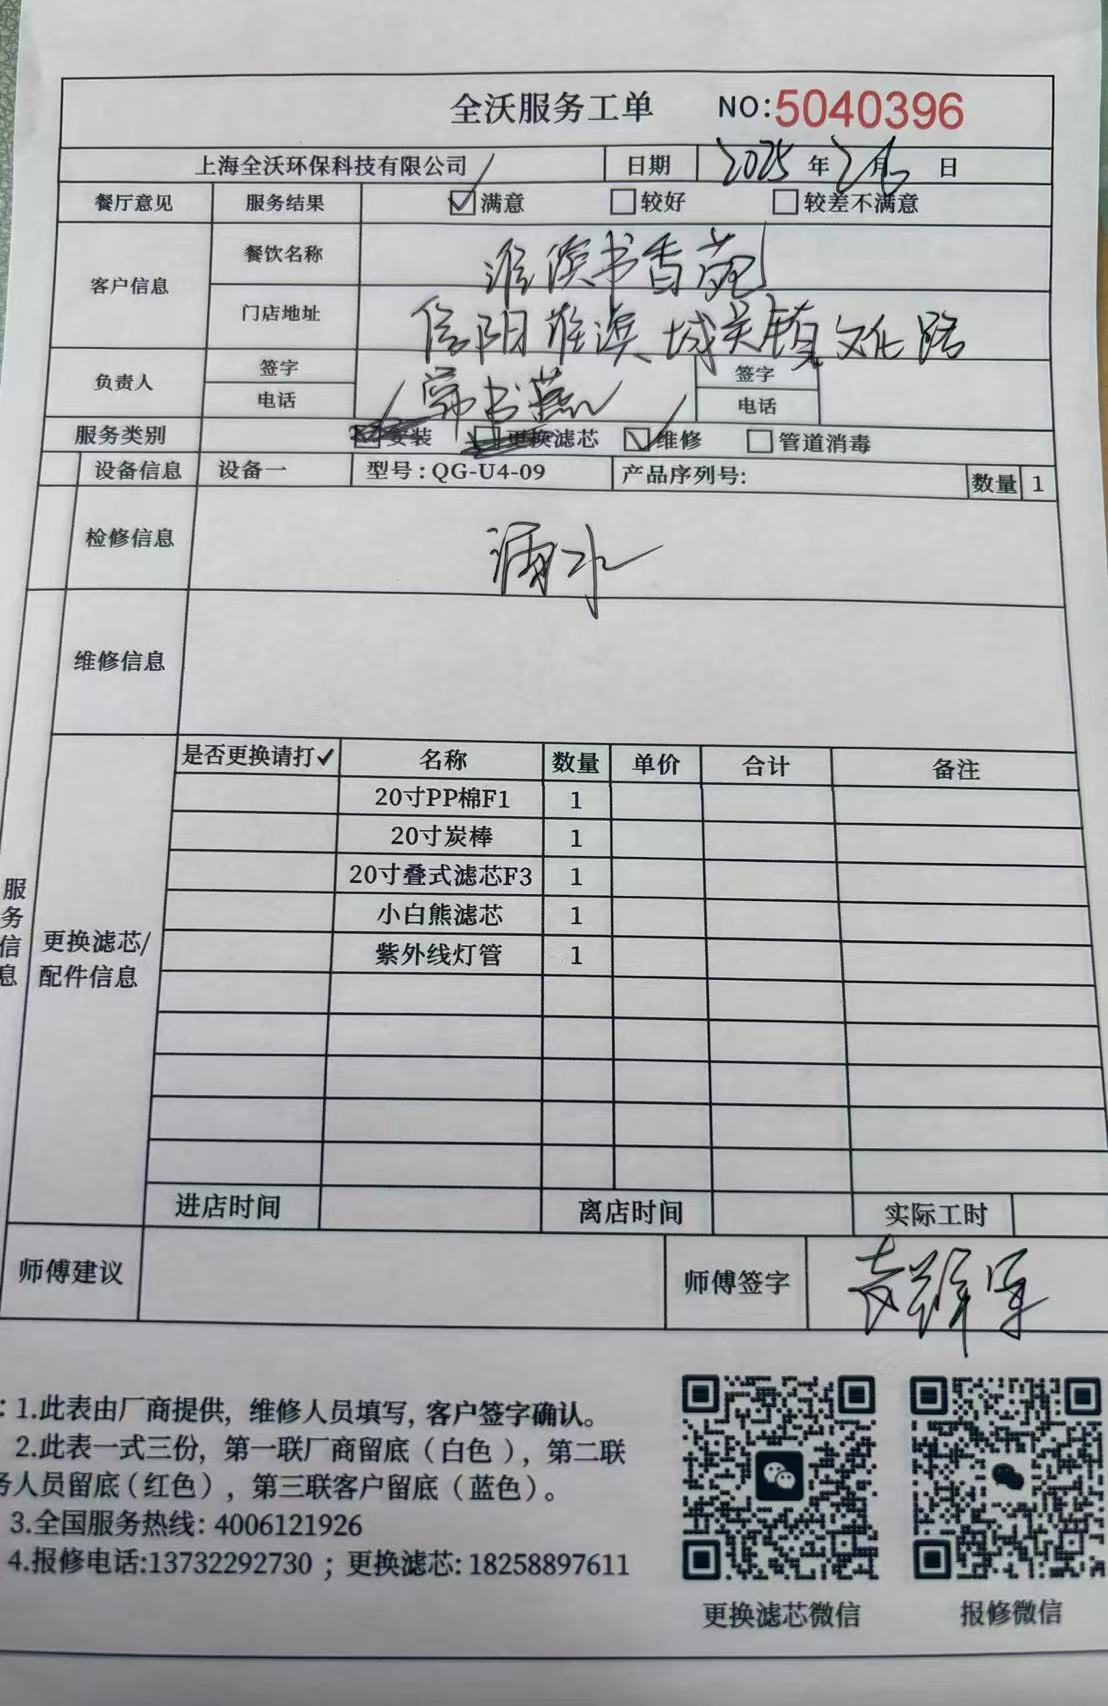 全沃服务工单 NO:5040396
上海全沃环保科技有限公司 日期 2025 年 2月6 日
餐厅意见 服务结果 ☑满意 □较好 □较差不满意
客户信息 餐饮名称 淮滨书香苑
门店地址 信阳淮滨城关镇文化路
负责人 签字 书燕 签字
电话 电话
服务类别 安装 更换滤芯 ☑维修 □管道消毒
设备信息 设备一 型号:QG-U4-09 产品序列号: 数量 1
检修信息 漏水
维修信息
服务信息
更换滤芯/配件信息
是否更换请打✓ 名称 数量 单价 合计 备注
20寸PP棉F1 1
20寸炭棒 1
20寸叠式滤芯F3 1
小白熊滤芯 1
紫外线灯管 1
进店时间 离店时间 实际工时
师傅建议 师傅签字
: 1.此表由厂商提供, 维修人员填写, 客户签字确认。
2.此表一式三份, 第一联厂商留底(白色), 第二联
务人员留底(红色), 第三联客户留底(蓝色)。
3.全国服务热线: 4006121926
4.报修电话:13732292730 ; 更换滤芯: 18258897611
更换滤芯微信 报修微信